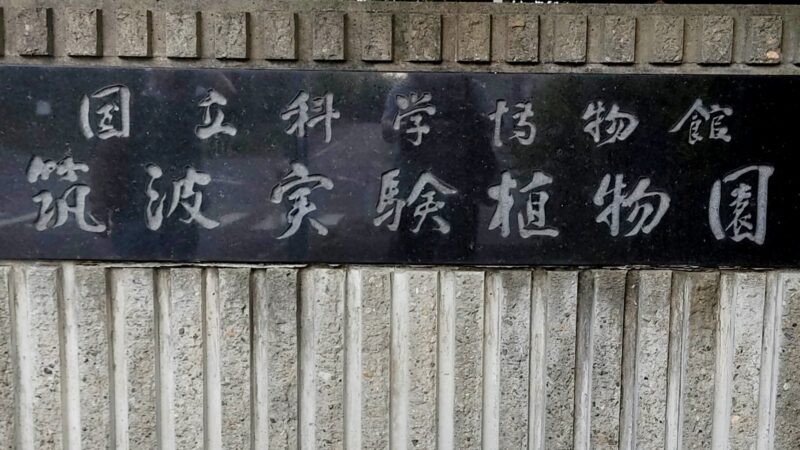 国立科学博物館
筑波実験植物園